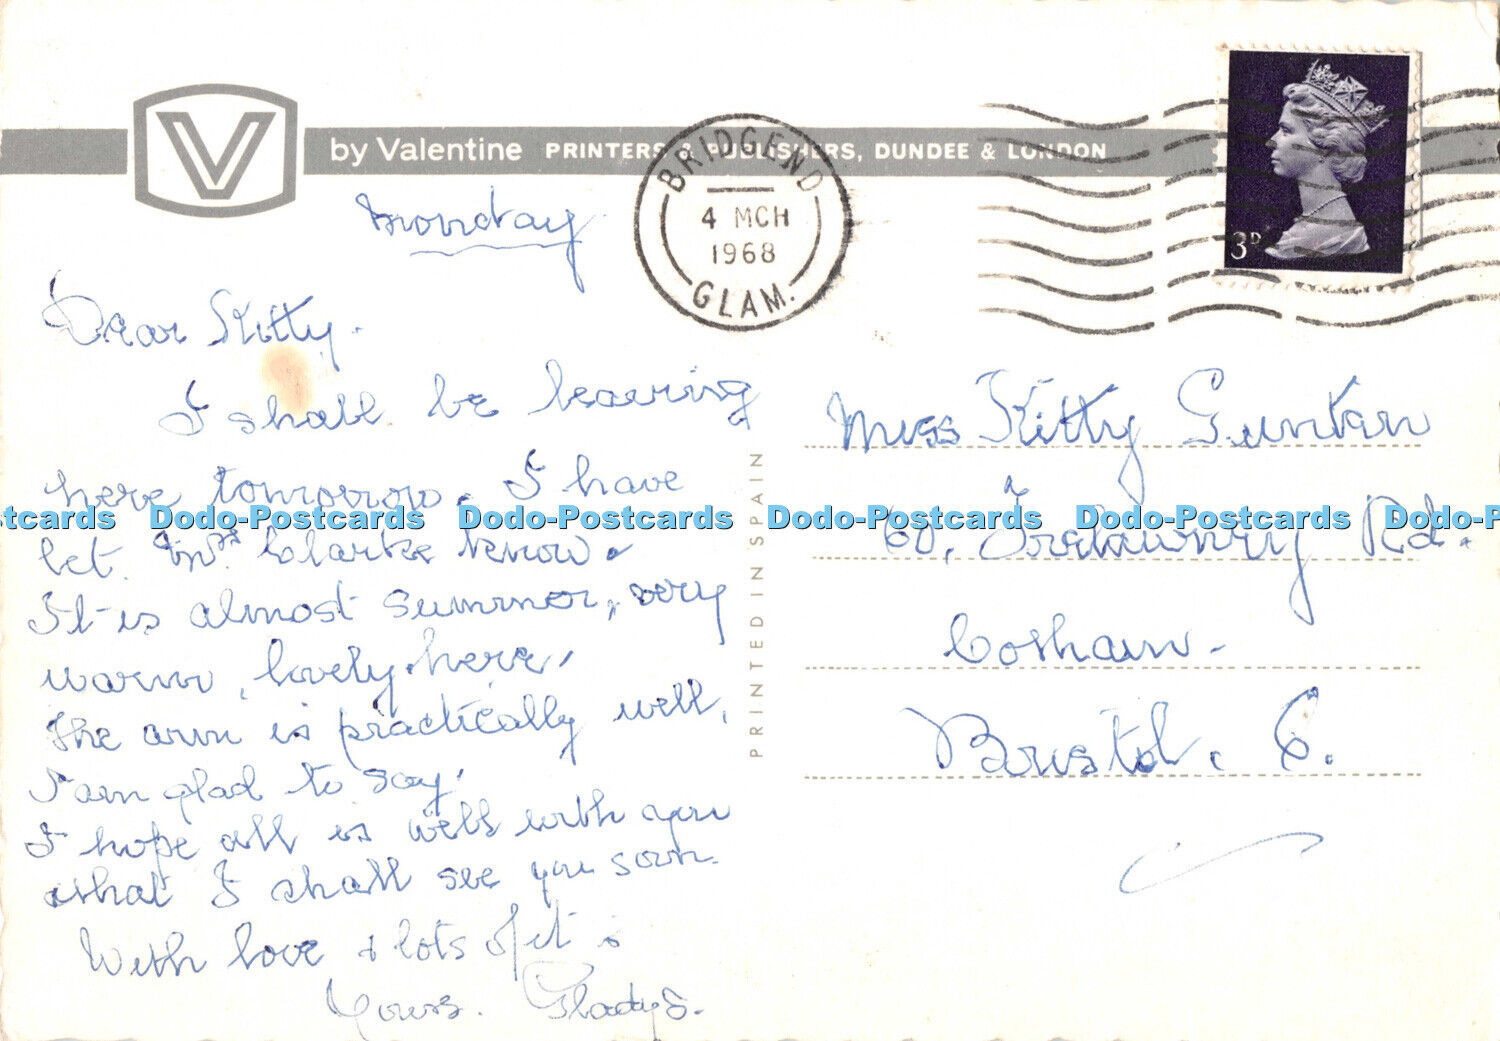 V by Valentine PRINTERS & PUBLISHERS, DUNDEE & LONDON
BRIDGEND
4 MCH
1968
GLAM.
3D
Monday
Dear Kitty.
I shall be leaving
here tomorrow. I have
let Mrs Clarke know.
It is almost summer, very
warm, lovely here,
The arm is practically well,
I am glad to say,
I hope all is well with you
what I shall see you soon.
With love & lots of it
Yours. Gladys.
PRINTED IN SPAIN
Miss Kitty Guntan
60, Trelawney Rd.
Cotham.
Bristol. 6.
tcards Dodo-Postcards Dodo-Postcards Dodo-Postcards Dodo-Postcards Dodo-P